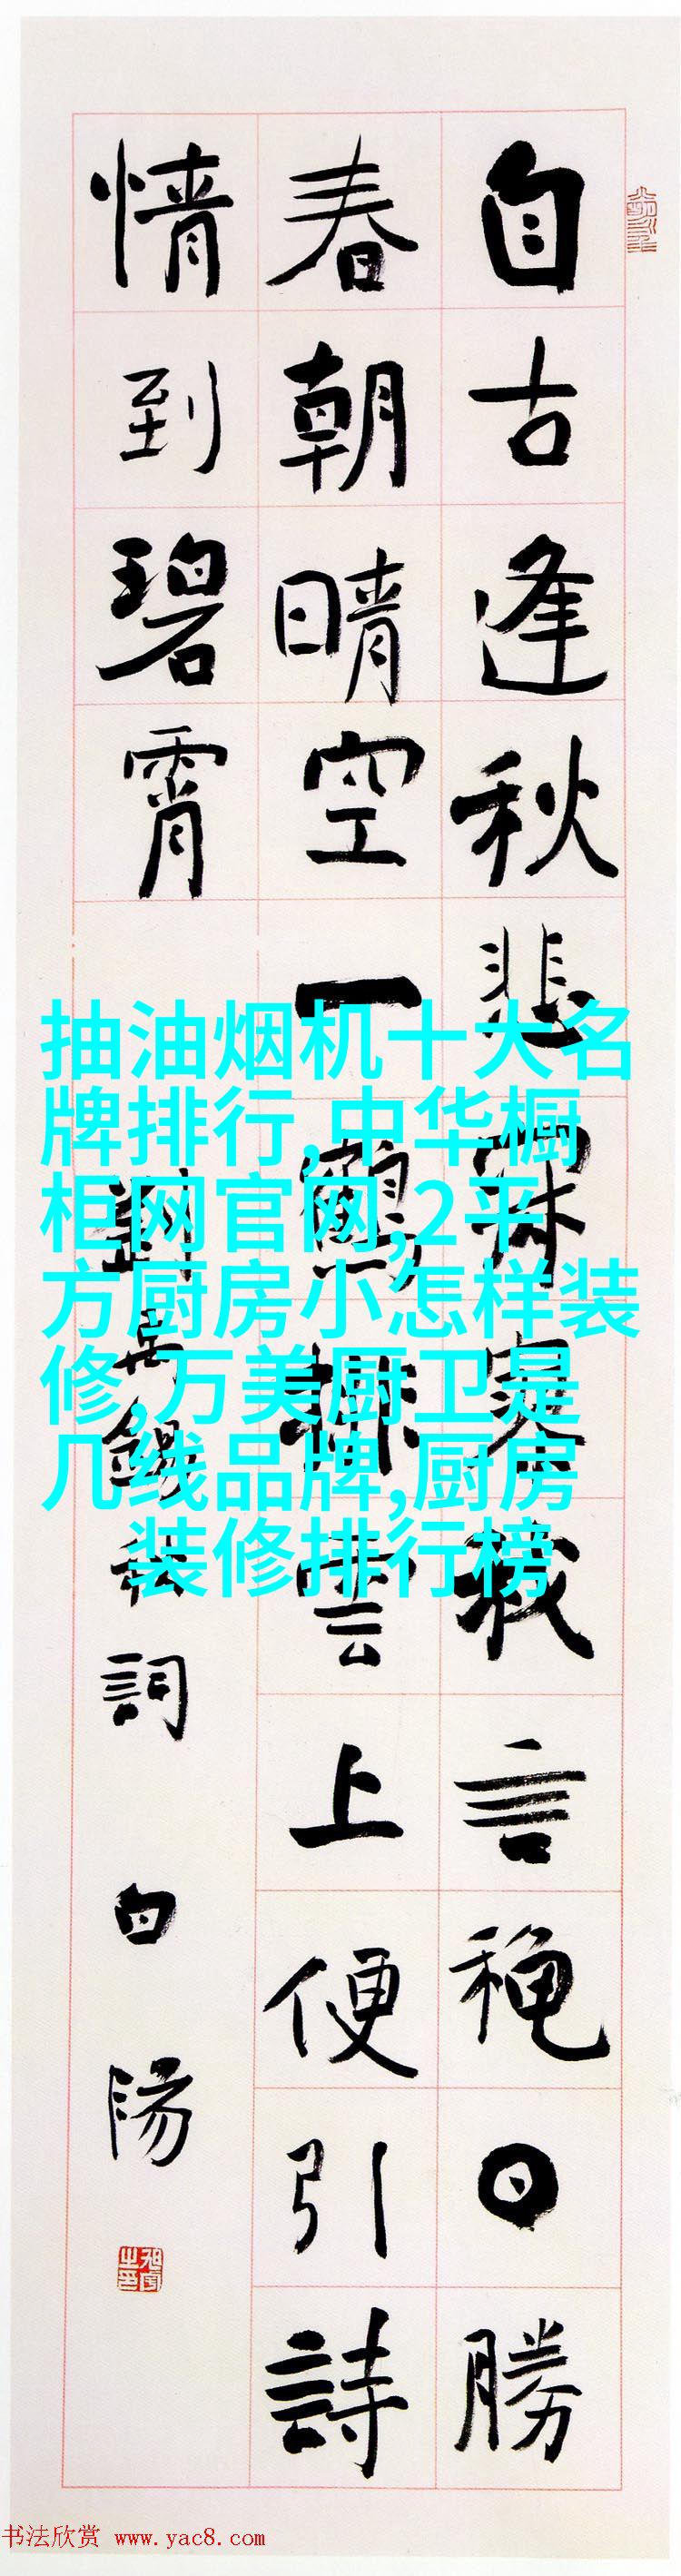 自古逢秋悲寂寥我言秋日勝
春朝晴空一鶴排雲上便引詩
情到碧霄
劉禹錫秋詞 白陽
抽油烟机十大名
牌排行,中华橱
柜网官网,2平
方厨房小怎样装
修,万美厨卫是
几线品牌,厨房
装修排行榜
书法欣赏 www.yac8.com